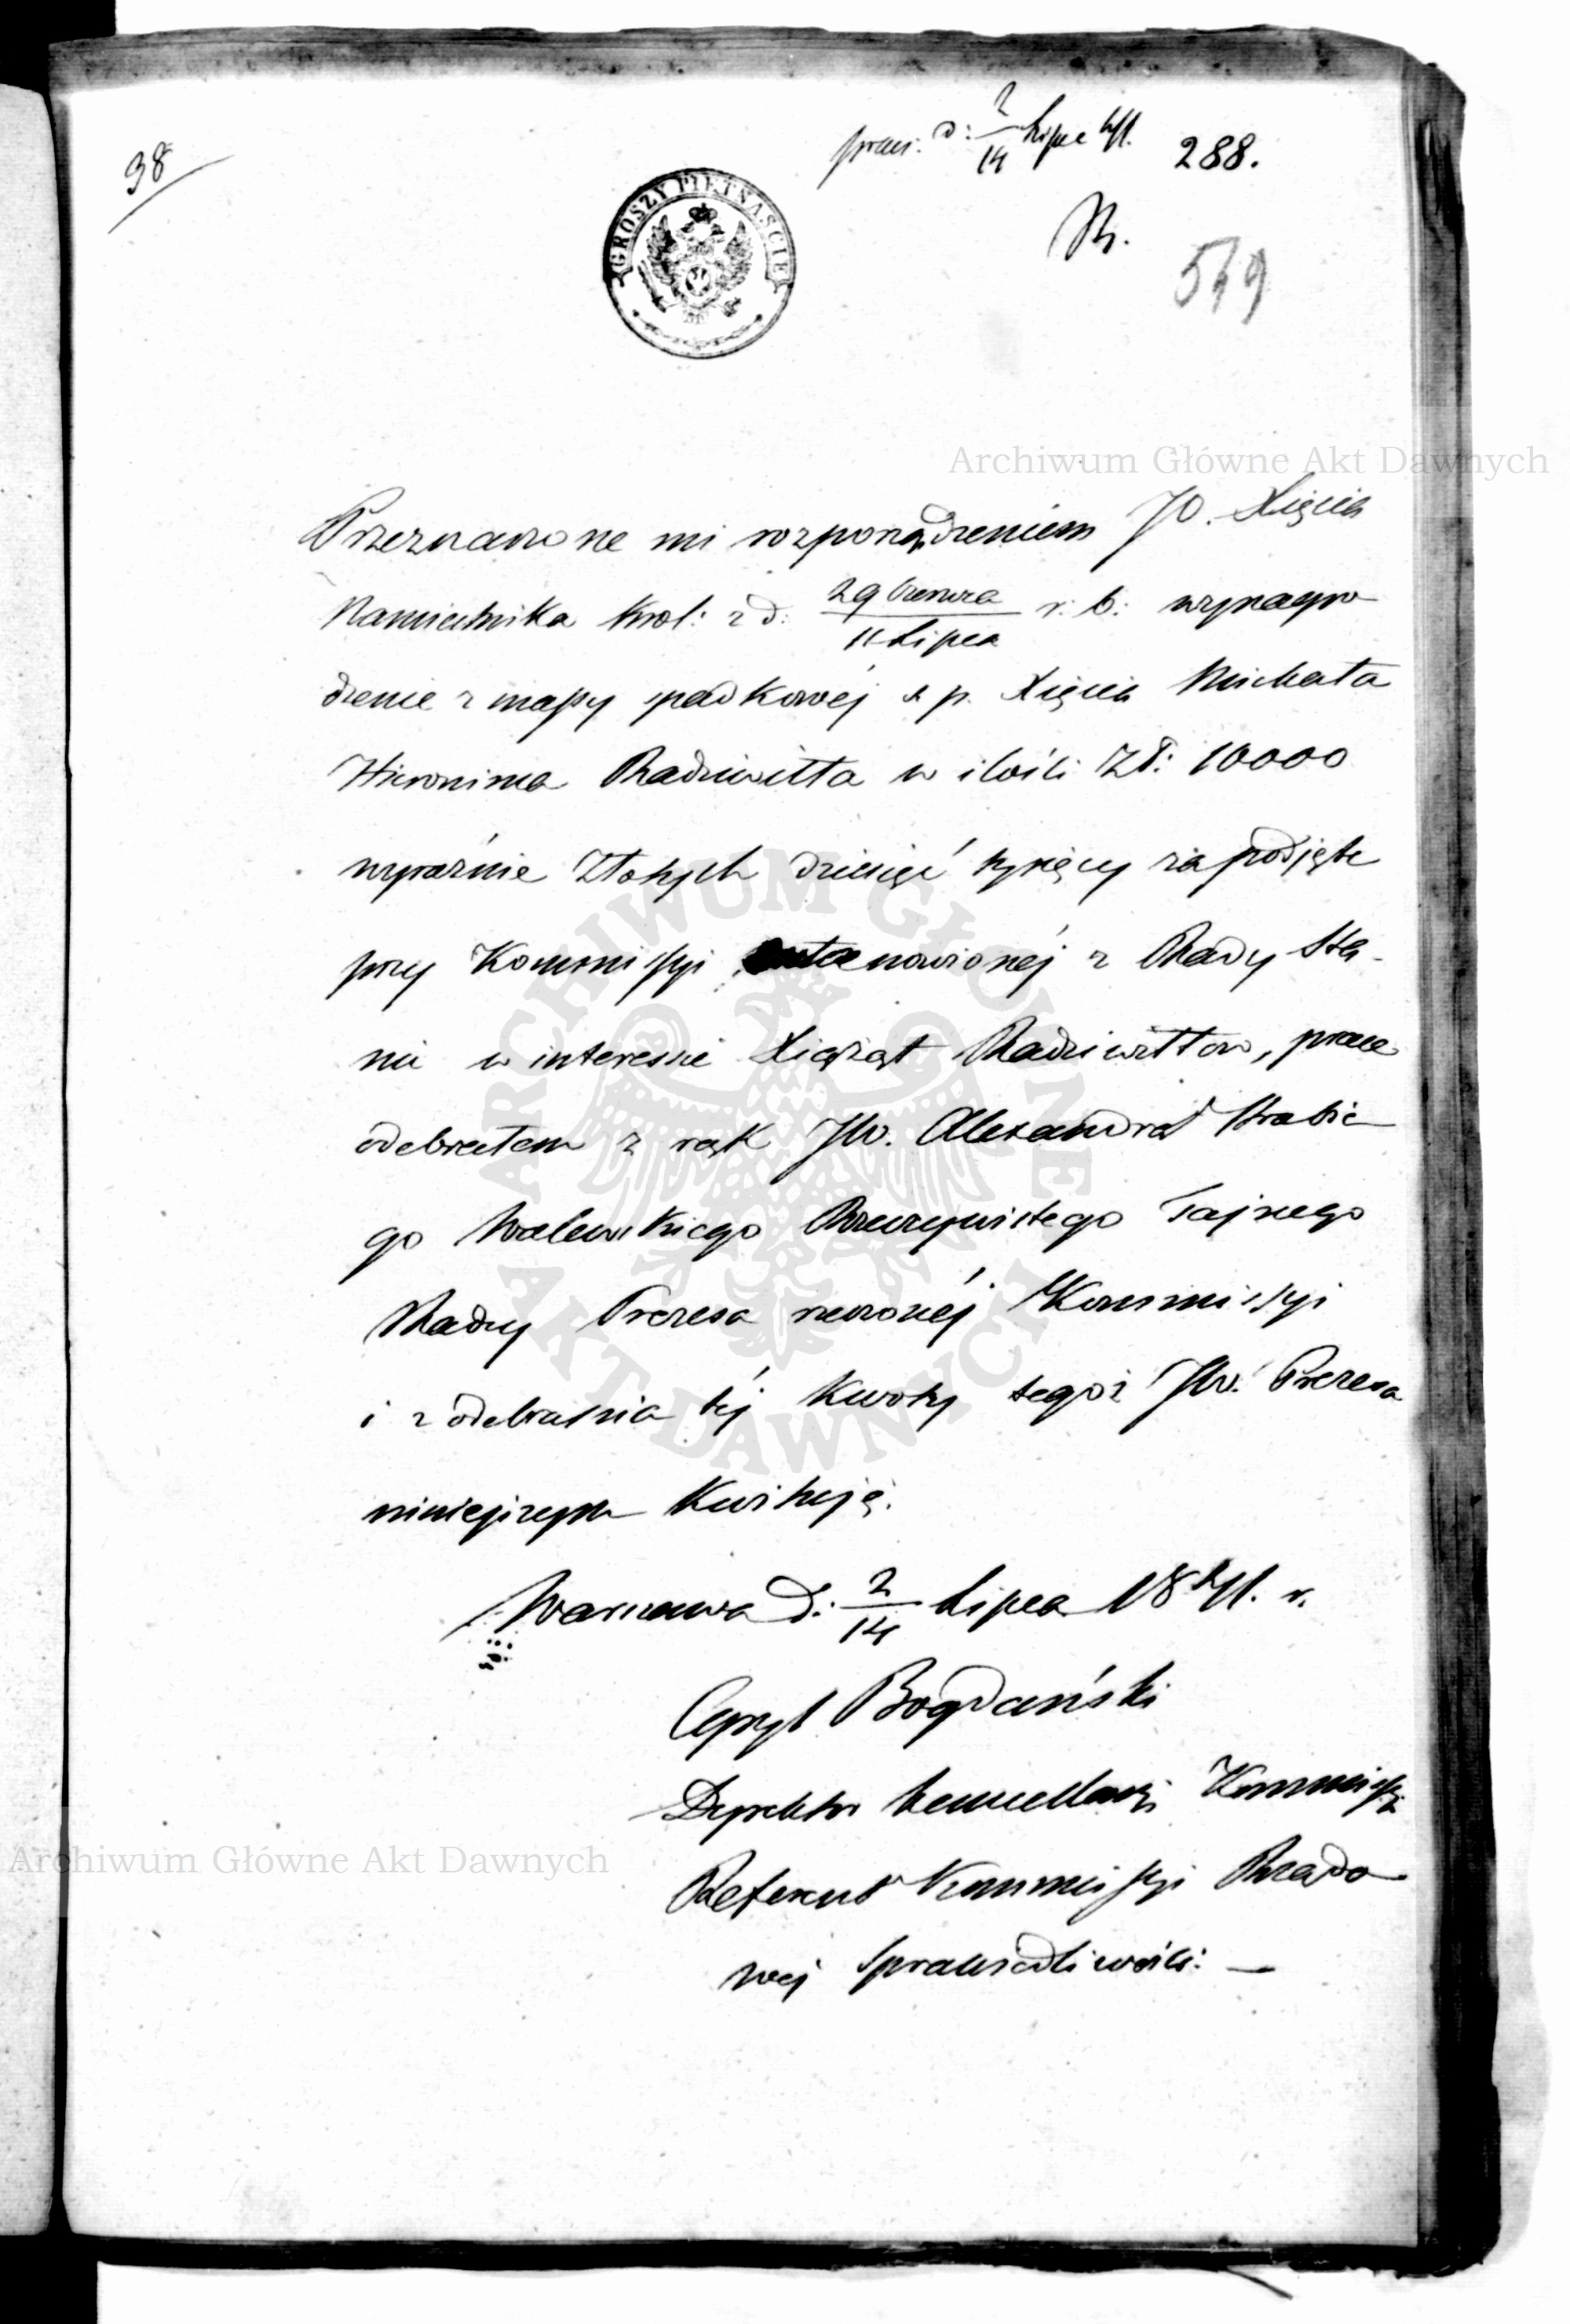 38
praes: d: 2/14 Lipca 41.
288.
549
GROSZY PIĘTNAŚCIE
Archiwum Główne Akt Dawnych
Przeznaczone mi rozporządzeniem JO. Xięcia
Namiestnika Król: z d: 29 Czerwca/11 Lipca r: b: wynagro
dzenie z massy spadkowéj ś p. Xięcia Michała
Hieronima Radziwiłła w ilości Zł: 10000
wyraźnie Złotych dziesięć tysięcy za podjęte
przy Kommissyi ustanowionéj z Rady Sta-
nu w interessie Xiążąt Radziwiłłow, prace
odebrałem z rąk JW. Alexandra Hrabie
go Walewskiego Rzeczywistego Tajnego
Radcy Prezesa rzeczonéj Kommissyi
i z odebrania téj Kwoty tegoż JW. Prezesa
niniejszym Kwituję.
Warszawa d: 2/14 Lipca 1841. r.
Cypryl Bogdański
Dyrektor Kancellaryi Kommissyi
Referent Kommissyi Rządo
wéj Sprawiedliwości: —
Archiwum Główne Akt Dawnych
ARCHIWUM GŁÓWNE AKT DAWNYCH